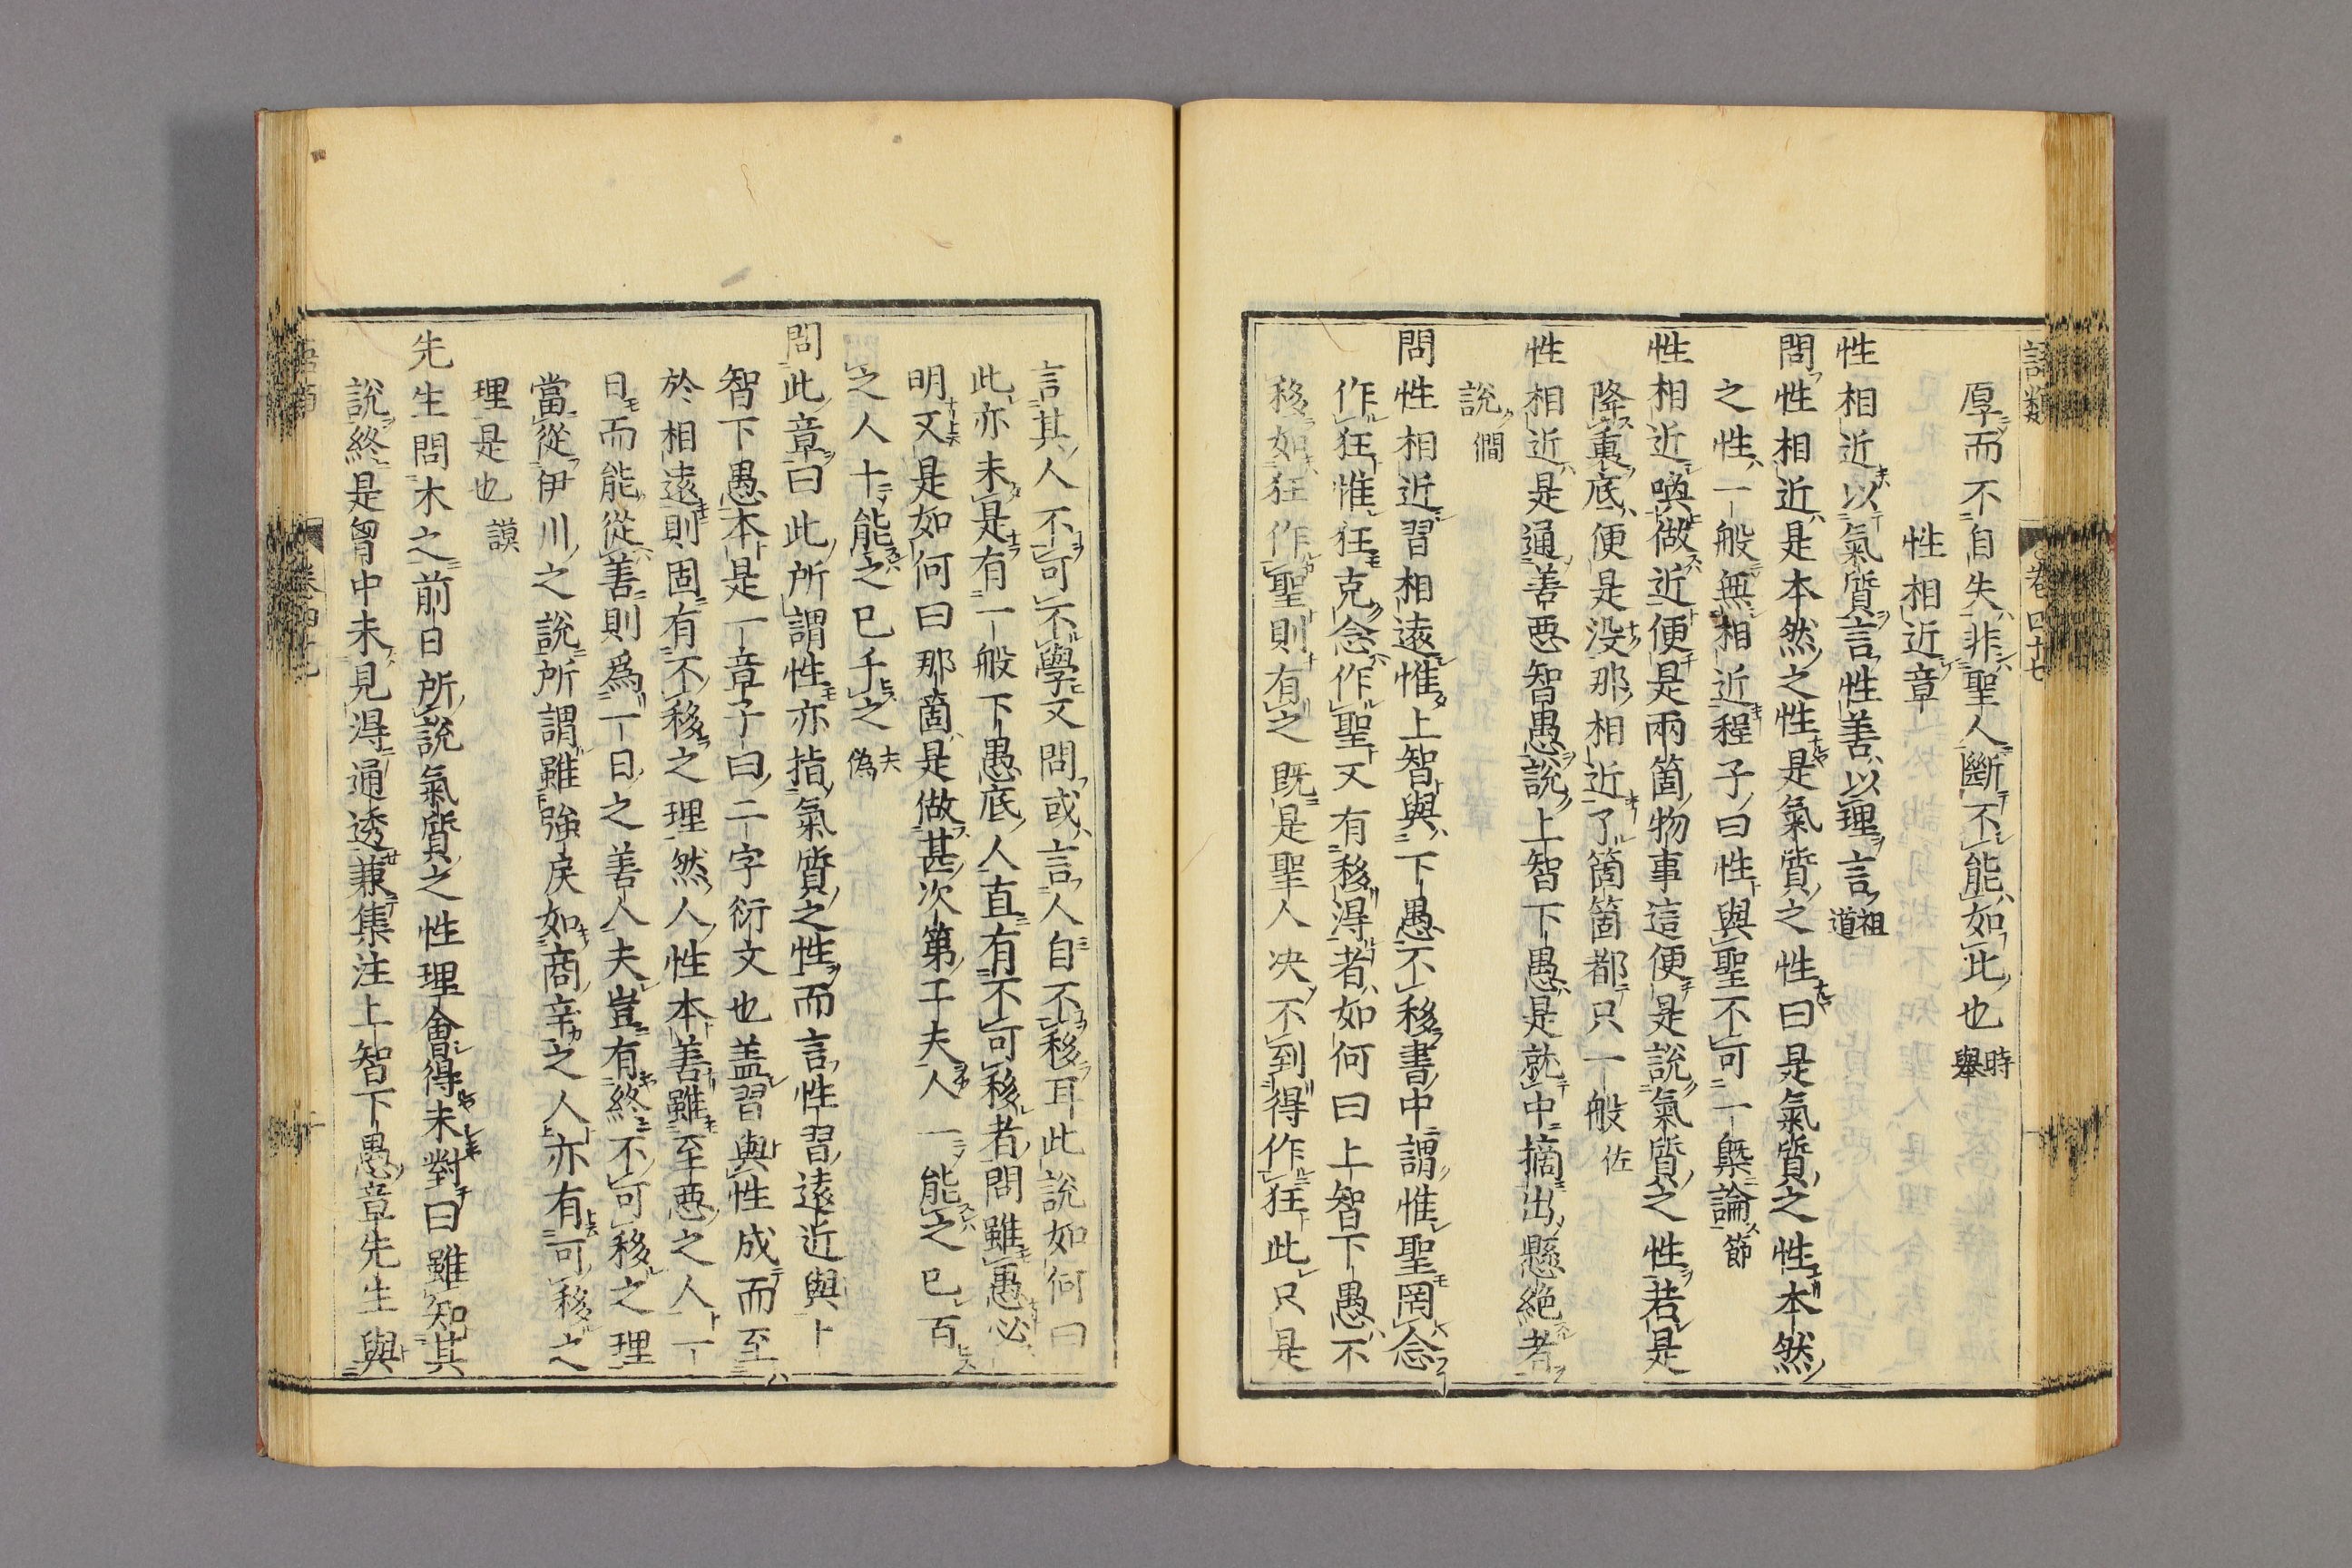 語類
卷四十七
厚而不自失非聖人斷不能如此也時舉
性相近章
性相近以氣質言性善以理言祖道
問性相近是本然之性是氣質之性曰是氣質之性本然
之性一般無相近程子曰性與聖不可一槩論節
性相近喚做近便是兩箇物事這便是說氣質之性若是
降衷底便是没那相近了箇箇都只一般佐
性相近是通善惡智愚說上智下愚是就中摘出懸絶者
說僩
問性相近習相遠惟上智與下愚不移書中謂惟聖罔念
作狂惟狂克念作聖又有移得者如何曰上智下愚不
移如狂作聖則有之既是聖人决不到得作狂此只是
言其人不可不學又問或言人自不移耳此說如何曰
此亦未是有一般下愚底人直有不可移者問雖愚必
明又是如何曰那箇是做甚次第工夫人一能之已百
之人十能之已千之夫僞
問此章曰此所謂性亦指氣質之性而言性習遠近與上
智下愚本是一章子曰二字衍文也盖習與性成而至
於相遠則固有不移之理然人性本善雖至惡之人一
日而能從善則爲一日之善人夫豈有終不可移之理
當從伊川之說所謂雖強戾如商辛之人亦有可移之
理是也謨
先生問木之前日所說氣質之性理會得未對曰雖知其
說終是胷中未見得通透兼集注上智下愚章先生與